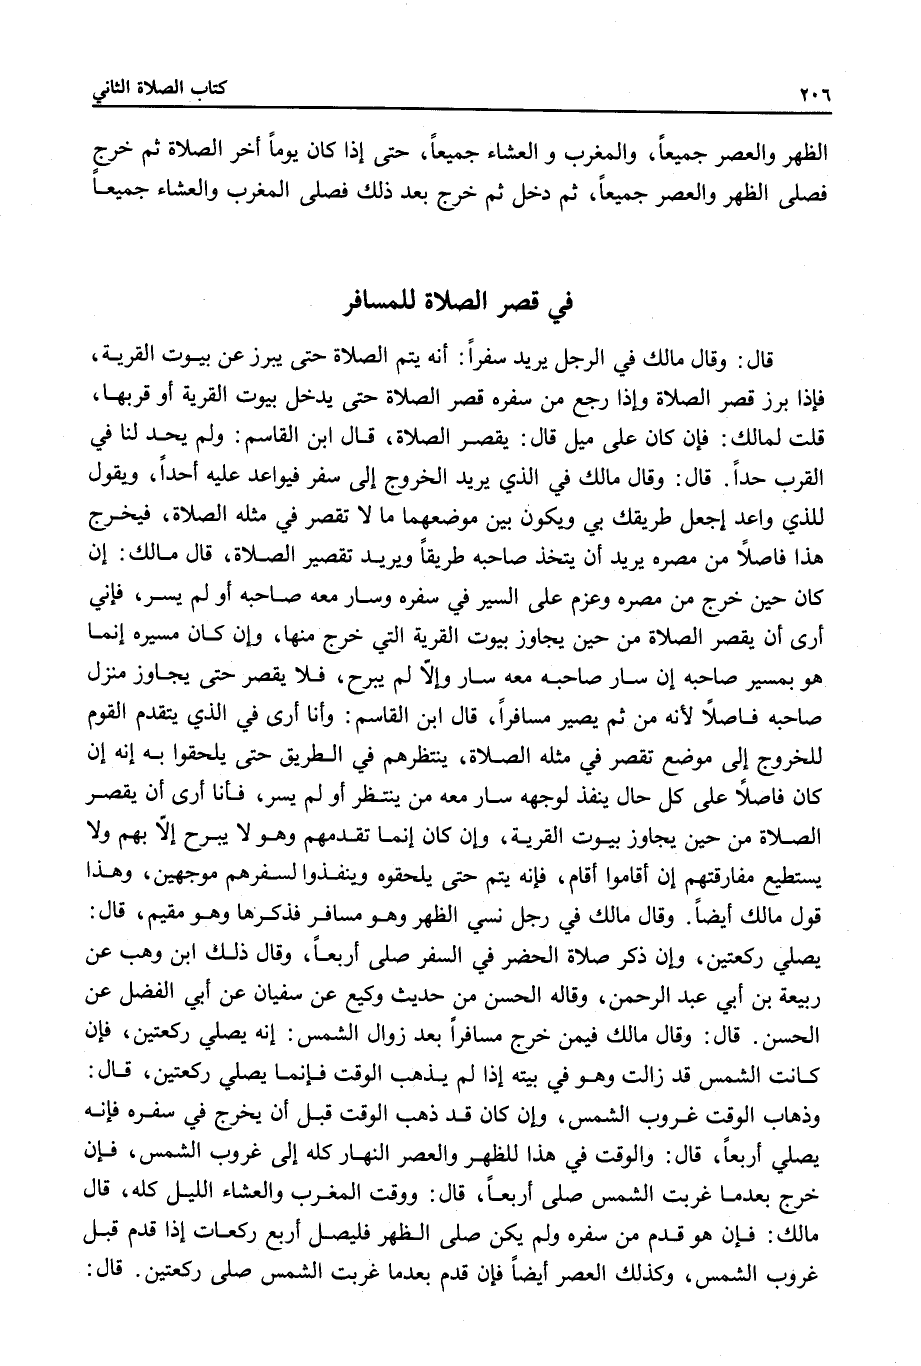 ٢٠٦
كتاب الصلاة الثاني
الظهر والعصر جميعاً، والمغرب و العشاء جميعاً، حتى إذا كان يوماً أخر الصلاة ثم خرج
فصلى الظهر والعصر جميعاً، ثم دخل ثم خرج بعد ذلك فصلى المغرب والعشاء جميعاً
في قصر الصلاة للمسافر
قال: وقال مالك في الرجل يريد سفراً: أنه يتم الصلاة حتى يبرز عن بيوت القرية،
فإذا برز قصر الصلاة وإذا رجع من سفره قصر الصلاة حتى يدخل بيوت القرية أو قربها،
قلت لمالك: فإن كان على ميل قال: يقصر الصلاة، قال ابن القاسم: ولم يحد لنا في
القرب حداً. قال: وقال مالك في الذي يريد الخروج إلى سفر فيواعد عليه أحداً، ويقول
للذي واعد إجعل طريقك بي ويكون بين موضعهما ما لا تقصر في مثله الصلاة، فيخرج
هذا فاصلاً من مصره يريد أن يتخذ صاحبه طريقاً ويريد تقصير الصلاة، قال مالك: إن
كان حين خرج من مصره وعزم على السير في سفره وسار معه صاحبه أو لم يسر، فإني
أرى أن يقصر الصلاة من حين يجاوز بيوت القرية التي خرج منها، وإن كان مسيره إنما
هو بمسير صاحبه إن سار صاحبه معه سار وإلاّ لم يبرح، فلا يقصر حتى يجاوز منزل
صاحبه فاصلاً لأنه من ثم يصير مسافراً، قال ابن القاسم: وأنا أرى في الذي يتقدم القوم
للخروج إلى موضع تقصر في مثله الصلاة، ينتظرهم في الطريق حتى يلحقوا به إنه إن
كان فاصلاً على كل حال ينفذ لوجهه سار معه من ينتظر أو لم يسر، فأنا أرى أن يقصر
الصلاة من حين يجاوز بيوت القرية، وإن كان إنما تقدمهم وهو لا يبرح إلاّ بهم ولا
يستطيع مفارقتهم إن أقاموا أقام، فإنه يتم حتى يلحقوه وينفذوا لسفرهم موجهين، وهذا
قول مالك أيضاً. وقال مالك في رجل نسي الظهر وهو مسافر فذكرها وهو مقيم، قال:
يصلي ركعتين، وإن ذكر صلاة الحضر في السفر صلى أربعاً، وقال ذلك ابن وهب عن
ربيعة بن أبي عبد الرحمن، وقاله الحسن من حديث وكيع عن سفيان عن أبي الفضل عن
الحسن. قال: وقال مالك فيمن خرج مسافراً بعد زوال الشمس: إنه يصلي ركعتين، فإن
كانت الشمس قد زالت وهو في بيته إذا لم يذهب الوقت فإنما يصلي ركعتين، قال:
وذهاب الوقت غروب الشمس، وإن كان قد ذهب الوقت قبل أن يخرج في سفره فإنه
يصلي أربعاً، قال: والوقت في هذا للظهر والعصر النهار كله إلى غروب الشمس، فإن
خرج بعدما غربت الشمس صلى أربعاً، قال: ووقت المغرب والعشاء الليل كله، قال
مالك: فإن هو قدم من سفره ولم يكن صلى الظهر فليصل أربع ركعات إذا قدم قبل
غروب الشمس، وكذلك العصر أيضاً فإن قدم بعدما غربت الشمس صلى ركعتين. قال: